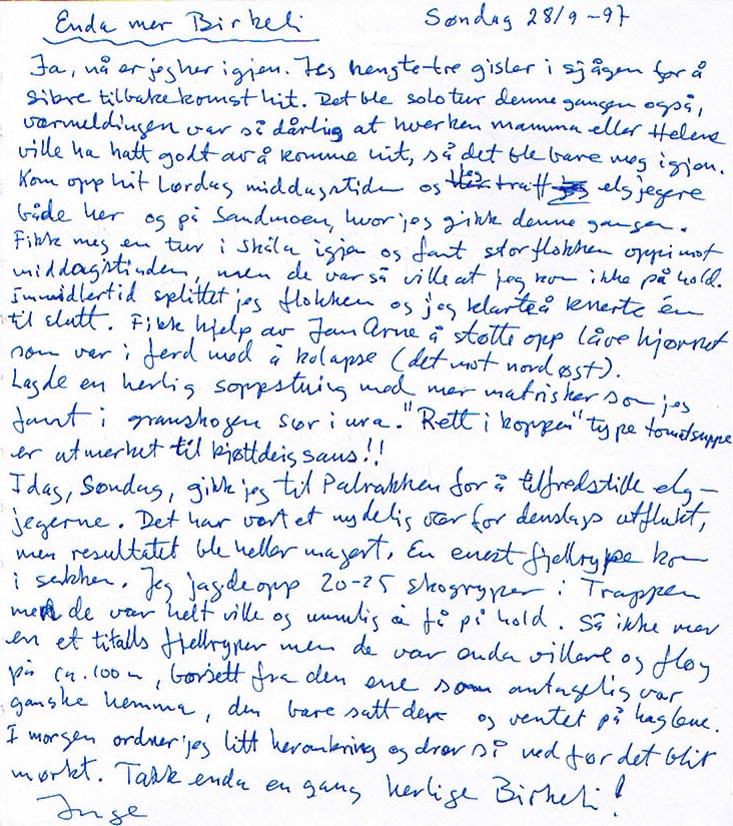 Enda mer Birkeli
Søndag 28/9-97
Ja, nå er jeg her igjen. Jeg hengte tre gisler i sjågen for å
sikre tilbakekomst hit. Det ble solotur denne gangen også,
værmeldingen var så dårlig at hverken mamma eller Helene
ville ha hatt godt av å komme hit, så det ble bare meg igjen.
Kom opp hit Lørdag middagstider og traff elgjegere
både her og på Sandmoen, hvor jeg gikk denne gangen.
Fikk meg en tur i Skåla igjen og fant storflokken oppimot
middagstinden, men de var så ville at jeg kom ikke på hold.
Immidlertid splittet jeg flokken og jeg klarte å knerte én
til slutt. Fikk hjelp av Jan Arne å støtte opp låvehjørnet
som var i ferd med å kolapse (det mot nordøst).
Lagde en herlig soppstuing med mer matrisker som jeg
fant i granskogen sør i ura. "Rett i koppen" type tomatsuppe
er utmerket til kjøttdeigsaus!!
Idag, Søndag, gikk jeg til Palrakken for å tilfredstille elg-
jegerne. Det har vært et nydelig vær for denslags utflukt,
men resultatet ble heller magert. En enest fjellrype kom
i sekken. Jeg jagde opp 20-25 skogryper i Trappen
men de var helt ville og umulig å få på hold. Så ikke mer
en et titalls fjellryper men de var enda villere og fløy
på ca. 100 m, borsett fra den ene som antagelig var
ganske hemma, den bare satt der og ventet på haglene.
I morgen ordner jeg litt forankring og drar så ned før det blir
mørkt. Takk enda en gang herlige Birkeli!
Inge